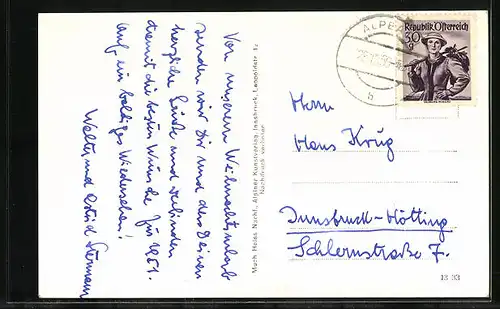 Von unserem Weihnachtsurlaub
senden wir Dir und den Deinen
herzliche Grüße und verbinden
damit die besten Wünsche für 1951.
Auf ein baldiges Wiedersehen!
Walter und Astrid
Much Heiss Nachf., Alpiner Kunstverlag, Innsbruck, Leopoldstr.
Nachdruck verboten
ALPBA
Republik Österreich
30
g
b
Herrn
Hans Krug
Innsbruck-Hötting
Schlernstraße 7.
13 33